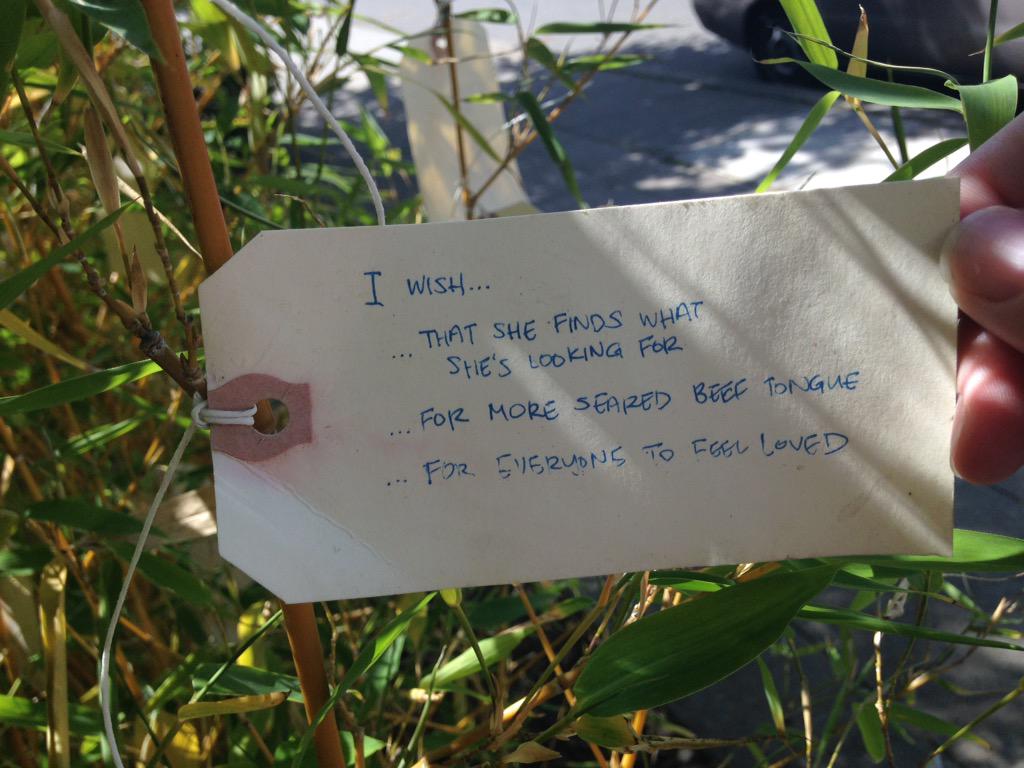 I WISH...
... THAT SHE FINDS WHAT
SHE'S LOOKING FOR
... FOR MORE SEARED BEEF TONGUE
... FOR EVERYONE TO FEEL LOVED